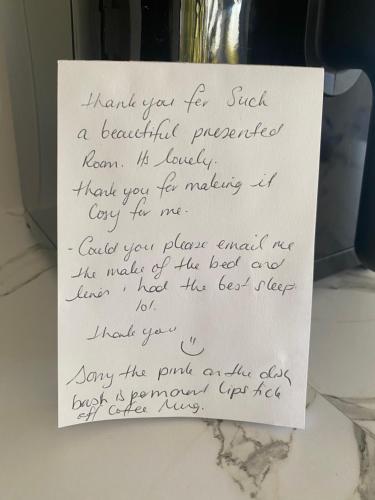 thank you for Such
a beautiful presented
Room. Its lovely.
thank you for making it
Cosy for me.
- Could you please email me
the make of the bed and
linen i had the best sleep
lol.
thank you
Sorry the pink on the dish
brush is permanent lipstick
off Coffee Mug.